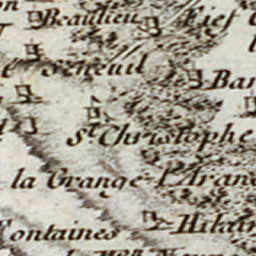 on Beaulieu Fief
Seneuil
Bar
St. Christophe
la Grange l'Aran
Hilair
Fontaines